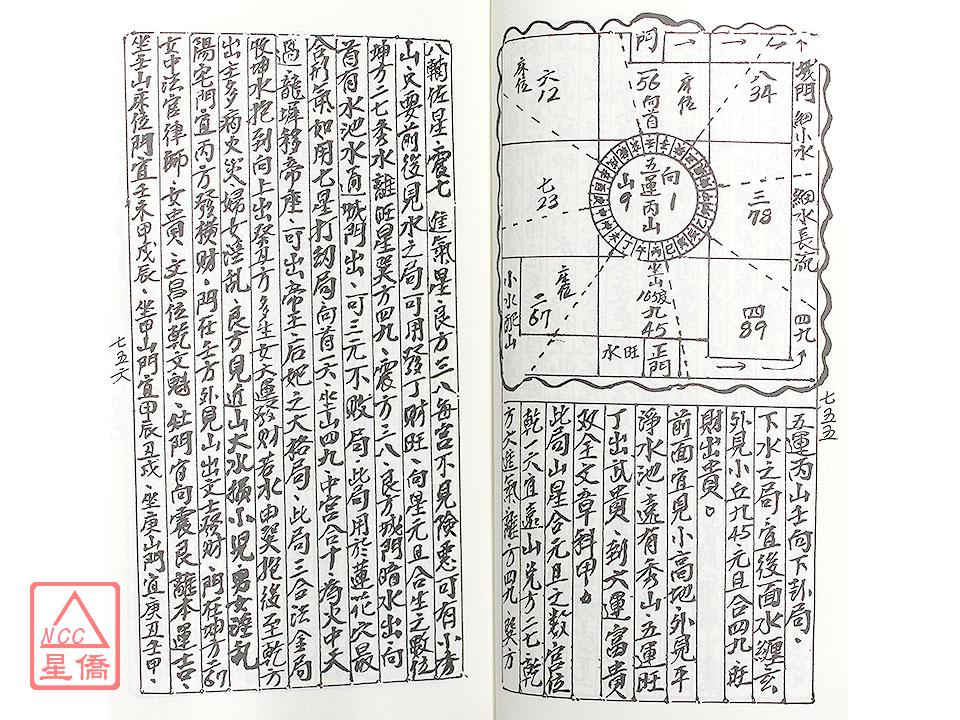 阿
城門
細小水
細水長流
四九
床位
六
12
56
向首
床位
八
34
七
23
五運丙山
向
1
山
9
三
78
小水
床位
二
67
坐山
九
45
四
89
水旺
正門
七五五
五運丙山壬向下卦局、
下水之局、宜後面水纏玄
外見小丘九45元旦合四九旺
財出貴。
前面宜見小高地、外見平
淨水池、遠有秀山五運旺
丁出武貴、到六運富貴
双全文章科甲。
此局山星合元旦之數宮位
乾一六宜遠山、兌方二七、乾
方六進氣、離方四九、巽方
八輔佐星、震七進氣星、艮方三八每宮不見險惡可有小秀
山、又要前後見水之局可用發丁財旺、向星元旦合生之數位
坤方二七秀水離旺星巽方四九、震方三八、艮方城門暗水出、向
首有水池水直過城門出、可三元不敗局、此局用於蓮花穴最
合形氣如用七星打劫局向首一六、坐山四九、中宮合十為火中天
過龍墀移帝座、可出帝王、后妃之大格局、此局三合法金局
收坤水抱到向上出癸丑方多生女大運發財若水由巽抱後至乾方
出主多病火災、婦女淫亂、良方見近山大水損小兒、男女淫乱
陽宅門宜丙方發橫財、門在壬方外見山出文士發財、門在坤方二67
女中法官律師、女貴、文昌位乾文魁、灶門宜向震艮離本運吉、
坐壬山床位門宜壬未甲戌辰、坐甲山門宜甲辰丑戌、坐庚山門宜庚丑壬甲、
七五六
NCC
星僑